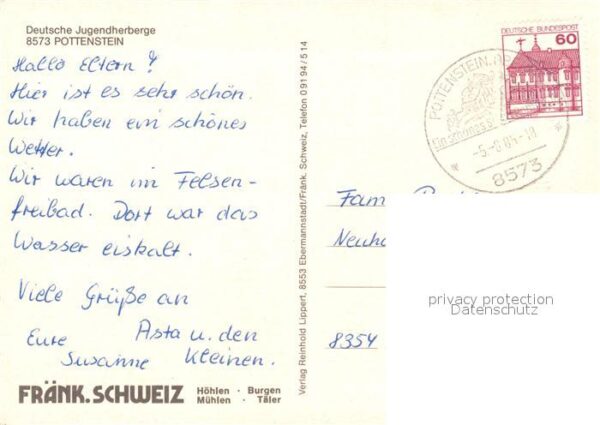 Deutsche Jugendherberge
8573 POTTENSTEIN
Hallo Eltern!
Hier ist es sehr schön.
Wir haben ein schönes
Wetter.
Wir waren im Felsen-
freibad. Dort war das
Wasser eiskalt.
Viele Grüße an
Asta u. den
Kleinen.
Eure
Susanne
FRÄNK. SCHWEIZ
Höhlen · Burgen
Mühlen · Täler
Verlag Reinhold Lippert, 8553 Ebermannstadt/Fränk. Schweiz, Telefon 0 91 94 / 5 14
DEUTSCHE BUNDESPOST
60
POTTENSTEIN
8573
Fam
8354
privacy protection
Datenschutz